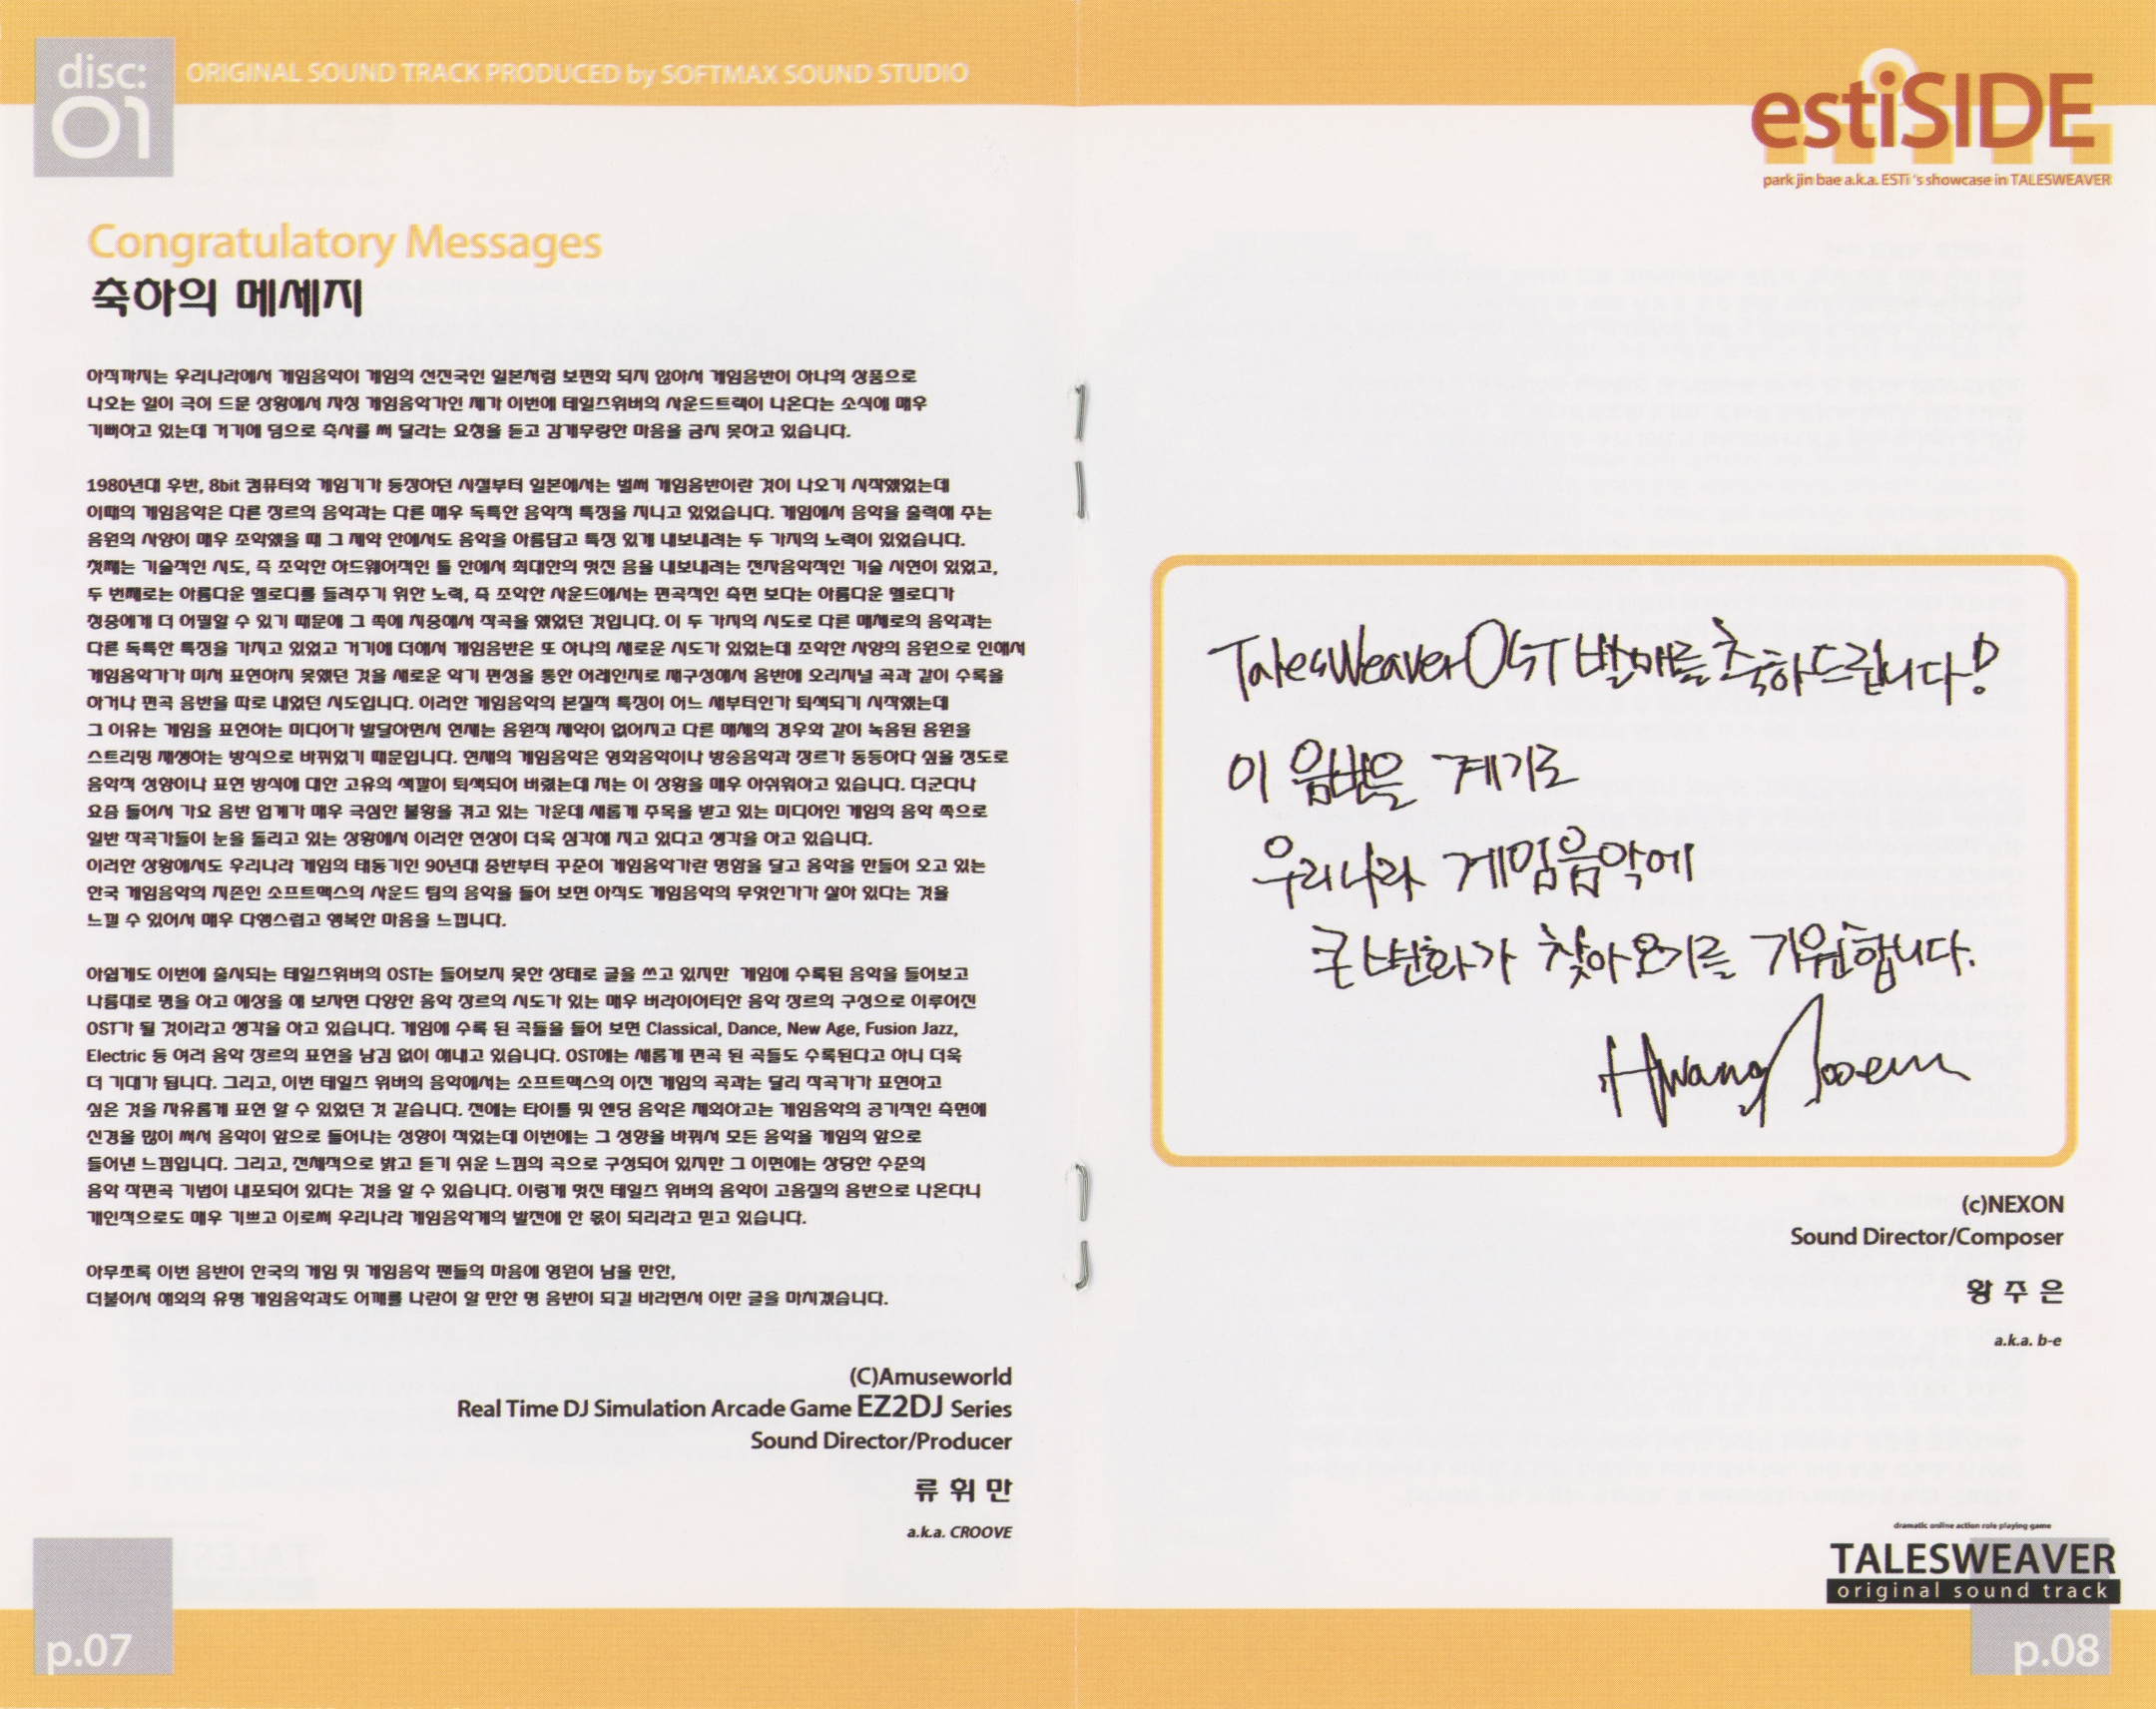 disc:
01
ORIGINAL SOUND TRACK PRODUCED by SOFTMAX SOUND STUDIO
Congratulatory Messages
축하의 메세지
아직까지는 우리나라에서 게임음악이 게임의 선진국인 일본처럼 보편화 되지 않아서 게임음반이 하나의 상품으로
나오는 일이 극히 드문 상황에서 자칭 게임음악가인 제가 이번에 테일즈위버의 사운드트랙이 나온다는 소식에 매우
기뻐하고 있는데 거기에 덤으로 축사를 써 달라는 요청을 듣고 감개무량한 마음을 금치 못하고 있습니다.
1980년대 후반, 8bit 컴퓨터와 게임기가 등장하던 시절부터 일본에서는 벌써 게임음반이란 것이 나오기 시작했었는데
이때의 게임음악은 다른 장르의 음악과는 다른 매우 독특한 음악적 특징을 지니고 있었습니다. 게임에서 음악을 출력해 주는
음원의 사양이 매우 조악했을 때 그 제약 안에서도 음악을 아름답고 특징 있게 내보내려는 두 가지의 노력이 있었습니다.
첫째는 기술적인 시도, 즉 조악한 하드웨어적인 틀 안에서 최대한의 멋진 음을 내보내려는 전자음악적인 기술 시연이 있었고,
두 번째로는 아름다운 멜로디를 들려주기 위한 노력, 즉 조악한 사운드에서는 편곡적인 측면 보다는 아름다운 멜로디가
청중에게 더 어필할 수 있기 때문에 그 쪽에 치중해서 작곡을 했었던 것입니다. 이 두 가지의 시도로 다른 매체로의 음악과는
다른 독특한 특징을 가지고 있었고 거기에 더해서 게임음반은 또 하나의 새로운 시도가 있었는데 조악한 사양의 음원으로 인해서
게임음악가가 미처 표현하지 못했던 것을 새로운 악기 편성을 통한 어레인지로 재구성해서 음반에 오리지널 곡과 같이 수록을
하거나 편곡 음반을 따로 내었던 시도입니다. 이러한 게임음악의 본질적 특징이 어느 새부터인가 퇴색되기 시작했는데
그 이유는 게임을 표현하는 미디어가 발달하면서 현재는 음원적 제약이 없어지고 다른 매체의 경우와 같이 녹음된 음원을
스트리밍 재생하는 방식으로 바뀌었기 때문입니다. 현재의 게임음악은 영화음악이나 방송음악과 장르가 동등하다 싶을 정도로
음악적 성향이나 표현 방식에 대한 고유의 색깔이 퇴색되어 버렸는데 저는 이 상황을 매우 아쉬워하고 있습니다. 더군다나
요즘 들어서 가요 음반 업계가 매우 극심한 불황을 겪고 있는 가운데 새롭게 주목을 받고 있는 미디어인 게임의 음악 쪽으로
일반 작곡가들이 눈을 돌리고 있는 상황에서 이러한 현상이 더욱 심각해 지고 있다고 생각을 하고 있습니다.
이러한 상황에서도 우리나라 게임의 태동기인 90년대 중반부터 꾸준히 게임음악가란 명함을 달고 음악을 만들어 오고 있는
한국 게임음악의 지존인 소프트맥스의 사운드 팀의 음악을 들어 보면 아직도 게임음악의 무엇인가가 살아 있다는 것을
느낄 수 있어서 매우 다행스럽고 행복한 마음을 느낍니다.
아쉽게도 이번에 출시되는 테일즈위버의 OST는 들어보지 못한 상태로 글을 쓰고 있지만 게임에 수록된 음악을 들어보고
나름대로 평을 하고 예상을 해 보자면 다양한 음악 장르의 시도가 있는 매우 버라이어티한 음악 장르의 구성으로 이루어진
OST가 될 것이라고 생각을 하고 있습니다. 게임에 수록 된 곡들을 들어 보면 Classical, Dance, New Age, Fusion Jazz,
Electric 등 여러 음악 장르의 표현을 남김 없이 해내고 있습니다. OST에는 새롭게 편곡 된 곡들도 수록된다고 하니 더욱
더 기대가 됩니다. 그리고, 이번 테일즈 위버의 음악에서는 소프트맥스의 이전 게임의 곡과는 달리 작곡가가 표현하고
싶은 것을 자유롭게 표현 할 수 있었던 것 같습니다. 전에는 타이틀 및 엔딩 음악은 제외하고는 게임음악의 공기적인 측면에
신경을 많이 써서 음악이 앞으로 들어나는 성향이 적었는데 이번에는 그 성향을 바꿔서 모든 음악을 게임의 앞으로
들어낸 느낌입니다. 그리고, 전체적으로 밝고 듣기 쉬운 느낌의 곡으로 구성되어 있지만 그 이면에는 상당한 수준의
음악 작편곡 기법이 내포되어 있다는 것을 알 수 있습니다. 이렇게 멋진 테일즈 위버의 음악이 고음질의 음반으로 나온다니
개인적으로도 매우 기쁘고 이로써 우리나라 게임음악계의 발전에 한 몫이 되리라고 믿고 있습니다.
아무쪼록 이번 음반이 한국의 게임 및 게임음악 팬들의 마음에 영원히 남을 만한,
더불어서 해외의 유명 게임음악과도 어깨를 나란히 할 만한 명 음반이 되길 바라면서 이만 글을 마치겠습니다.
(C)Amuseworld
Real Time DJ Simulation Arcade Game EZ2DJ Series
Sound Director/Producer
류 휘 만
a.k.a. CROOVE
p.07
estiSIDE
park jin bae a.k.a. ESTi 's showcase in TALESWEAVER
TalesWeaver OST 발매를 축하드립니다!
이 음반을 계기로
우리나라 게임음악에
큰 변화가 찾아오기를 기원합니다.
Hwang Jooeun
(c)NEXON
Sound Director/Composer
황 주 은
a.k.a. b-e
dramatic online action role playing game
TALESWEAVER
original sound track
p.08